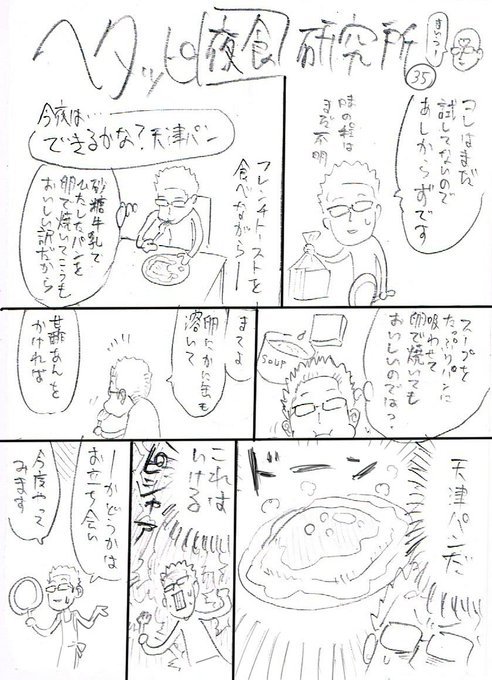 ヘタッピ夜食研究所
まいつー!
35
コレはまだ
試してないので
あしからずです
味の程は
まだ不明
今夜は…
できるかな?天津パン
フレンチトーストを
食べながら――
砂糖牛乳で
ひたしたパンを
卵で焼いてこうも
おいしい訳だから
スープを
たっぷりパンに
吸わせて
卵で焼いても
おいしいのでは?
SOUP
まてよ
卵にかに缶も
溶いて
甘酢あんを
かければ
天津パンだ
ドーン
これは
いける
ピシャァ
―かどうかは
お立ち合い
今度やって
みます